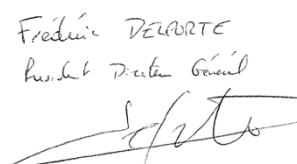 Frédéric DELPORTE
Président Directeur Général